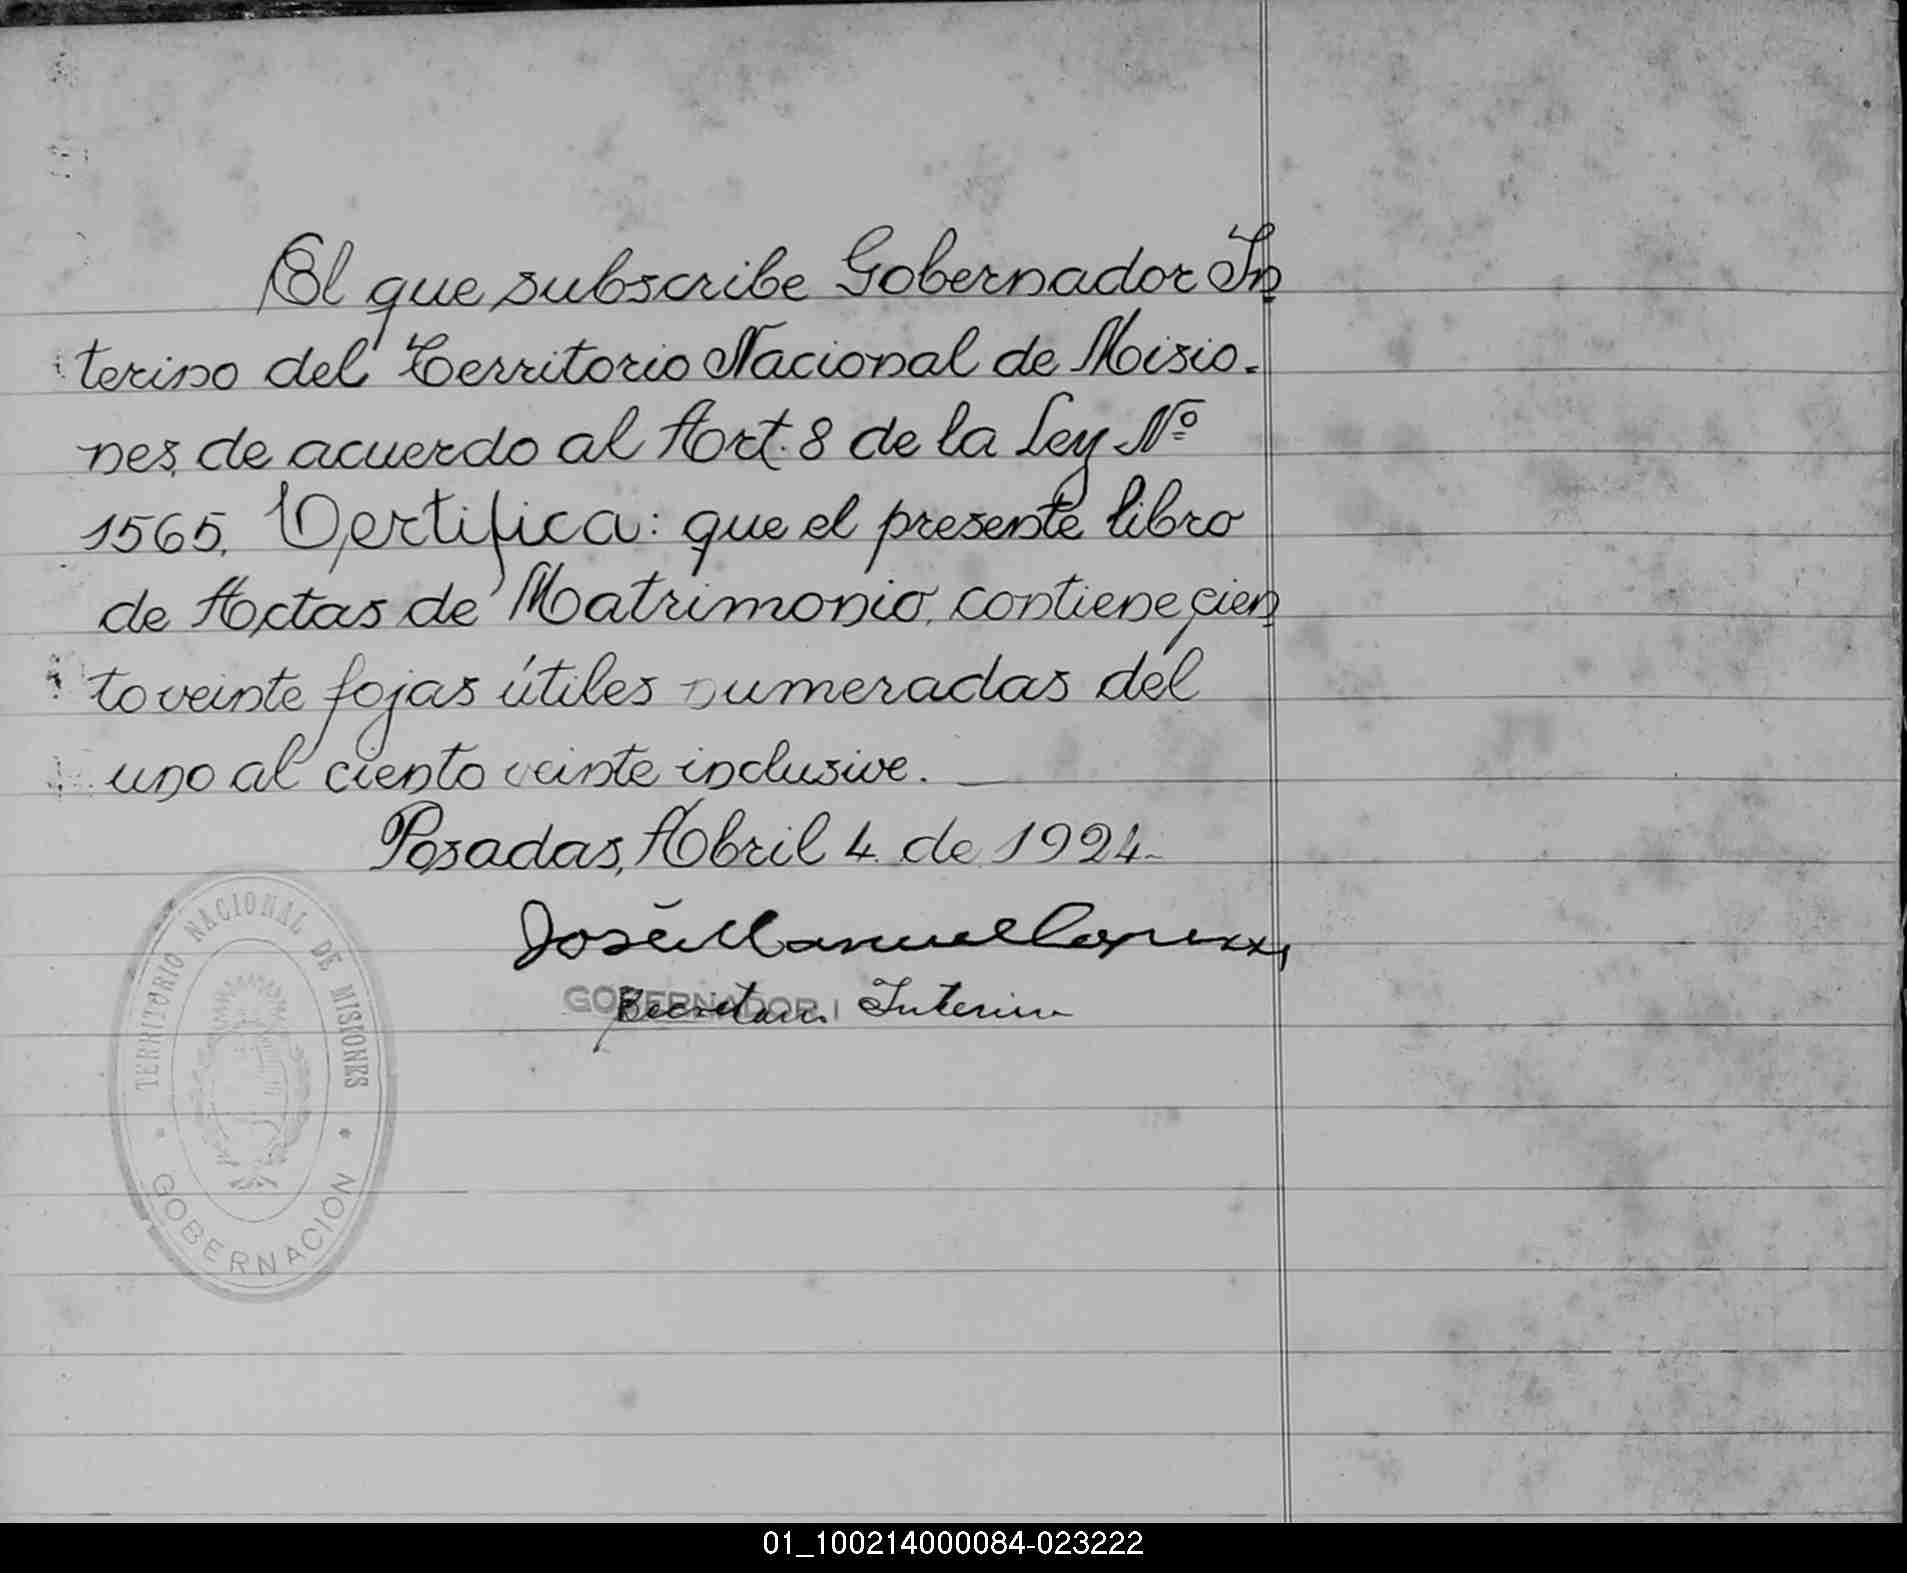 El que subscribe Gobernador In
terino del Territorio Nacional de Misio-
nes, de acuerdo al Art. 8 de la Ley Nº
1565, Certifica: que el presente libro
de Actas de Matrimonio, contiene cien
to veinte fojas útiles numeradas del
uno al ciento veinte inclusive. —
Posadas, Abril 4 de 1924-
José Manuel
GOBERNADOR I
Secretario Interino
TERRITORIO NACIONAL DE MISIONES
* GOBERNACION *
01_100214000084-023222